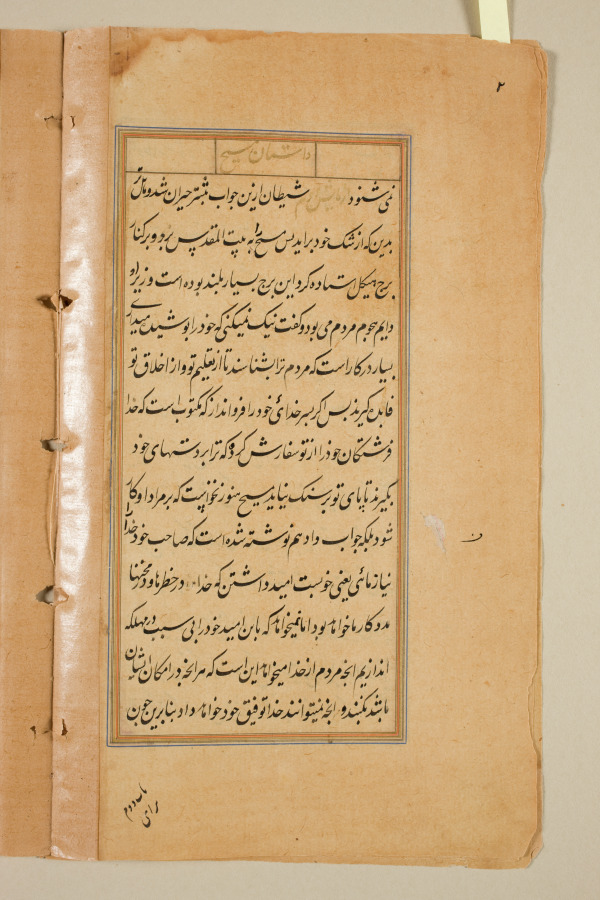 ۲
داستان مسیح
نمی شنود شیطان ازین جواب بیشتر حیران شد و
بدین که از شک خود براید پس مسیح را به بیت المقدس برد و بر کنار
برج هیکل استاده کرد این برج بسیار بلند بوده است و زیر او
دایم هجوم مردم می بود و گفت نیک نمیکنی که خود را پوشیده میداری
بسیار در کار است که مردم ترا بشناسند تا از تعلیم تو و از اخلاق تو
فایده گیرند پس اگر پسر خدائی خود را فرو انداز که مکتوب است که خدا
فرشتگان خود را از تو سفارش کرد که ترا بر دستهای خود
بگیرند تا پای تو بر سنک نیاید مسیح هنوز نخواست که بر مراد او کار
شود بلکه جواب داد هم نوشته شده است که صاحب خود خدا را
نیازمائی یعنی خوبست امید داشتن که خدا در خطرها و در محنتها
مددکار ما خواهد بود اما نمیخواهد که باین امید خود را بی سبب در مهلکه
اندازیم انچه مردم از خدا میخواهد این است که هر انچه در امکان ایشان
باشد بکنند و انچه نمیتوانند خدا توفیق خود خواهد داد بنابرین چون